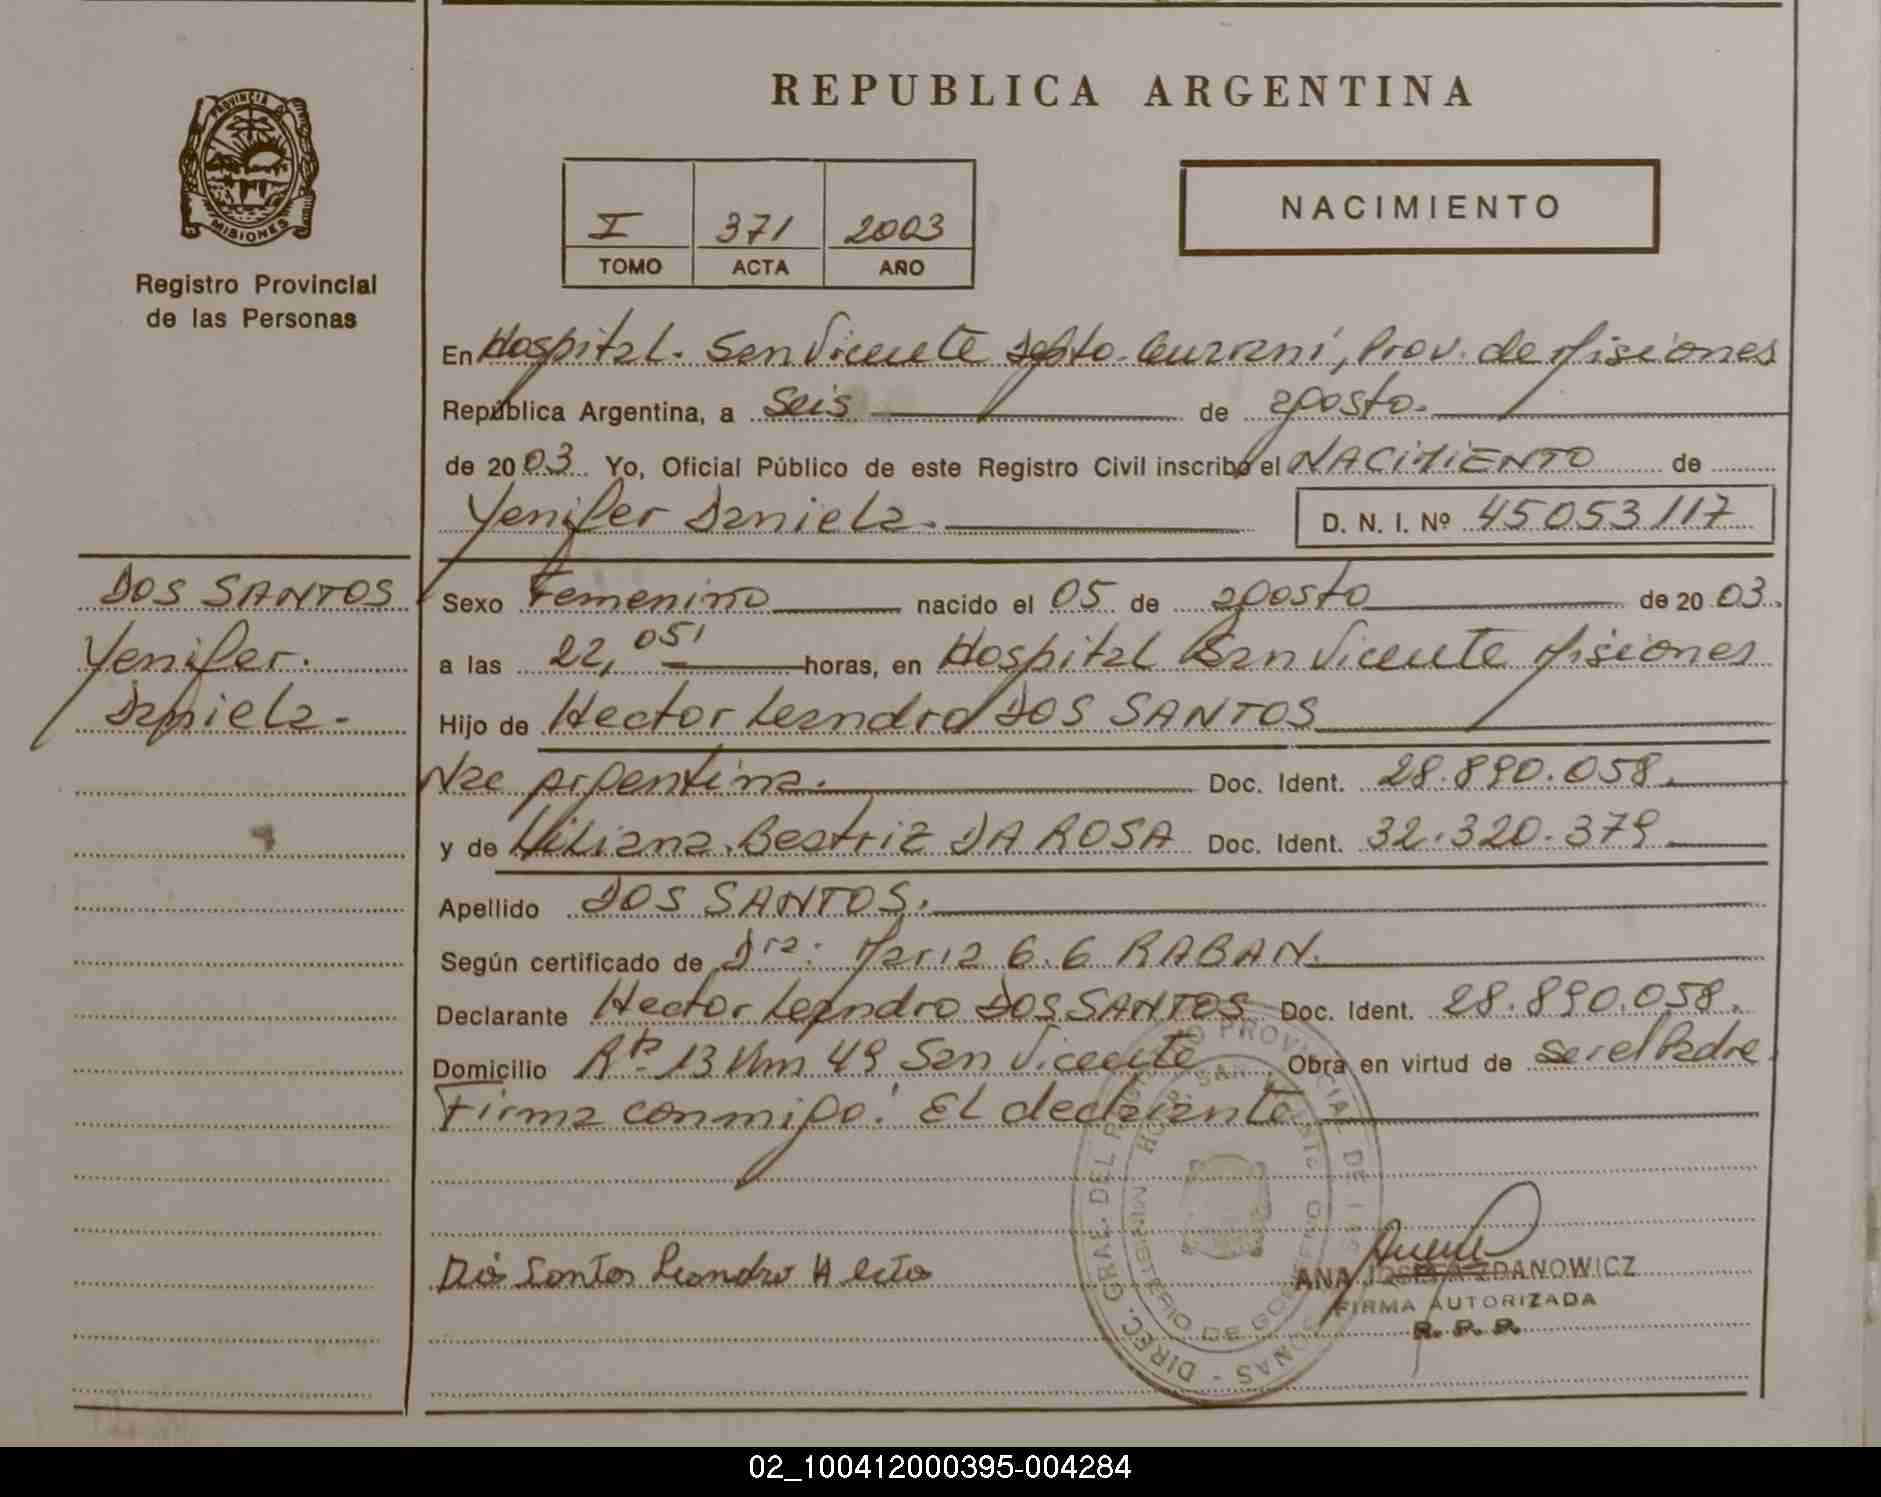 REPUBLICA ARGENTINA
PROVINCIA DE
MISIONES
Registro Provincial
de las Personas
I 371 2003
TOMO ACTA AÑO
NACIMIENTO
En Hospital. San Vicente Depto. Guaraní, Prov. de Misiones
República Argentina, a Seis de agosto.
de 2003 Yo, Oficial Público de este Registro Civil inscribo el NACIMIENTO de
Yenifer Daniela. D. N. I. Nº 45053117
DOS SANTOS
Yenifer.
Daniela.-
Sexo Femenino nacido el 05 de agosto de 2003.
a las 22,05' horas, en Hospital San Vicente Misiones
Hijo de Hector Leandro DOS SANTOS
Nac argentina. Doc. Ident. 28.890.058.
y de Liliana. Beatriz DA ROSA Doc. Ident. 32.320.379
Apellido DOS SANTOS.
Según certificado de Dra: Maria G. G RABAN.
Declarante Hector Leandro DOS SANTOS Doc. Ident. 28.890.058.
Domicilio Rta 13 Km 49 San Vicente Obra en virtud de ser el Padre.
Firma conmigo: El declarante
Dos Santos Leandro Hector
ANA JOSEFA ZDANOWICZ
FIRMA AUTORIZADA
R. P. P.
DIREC. GRAL. DEL REGISTRO PROVINCIAL DE LAS PERSONAS -
MINISTERIO DE GOBIERNO
02_100412000395-004284